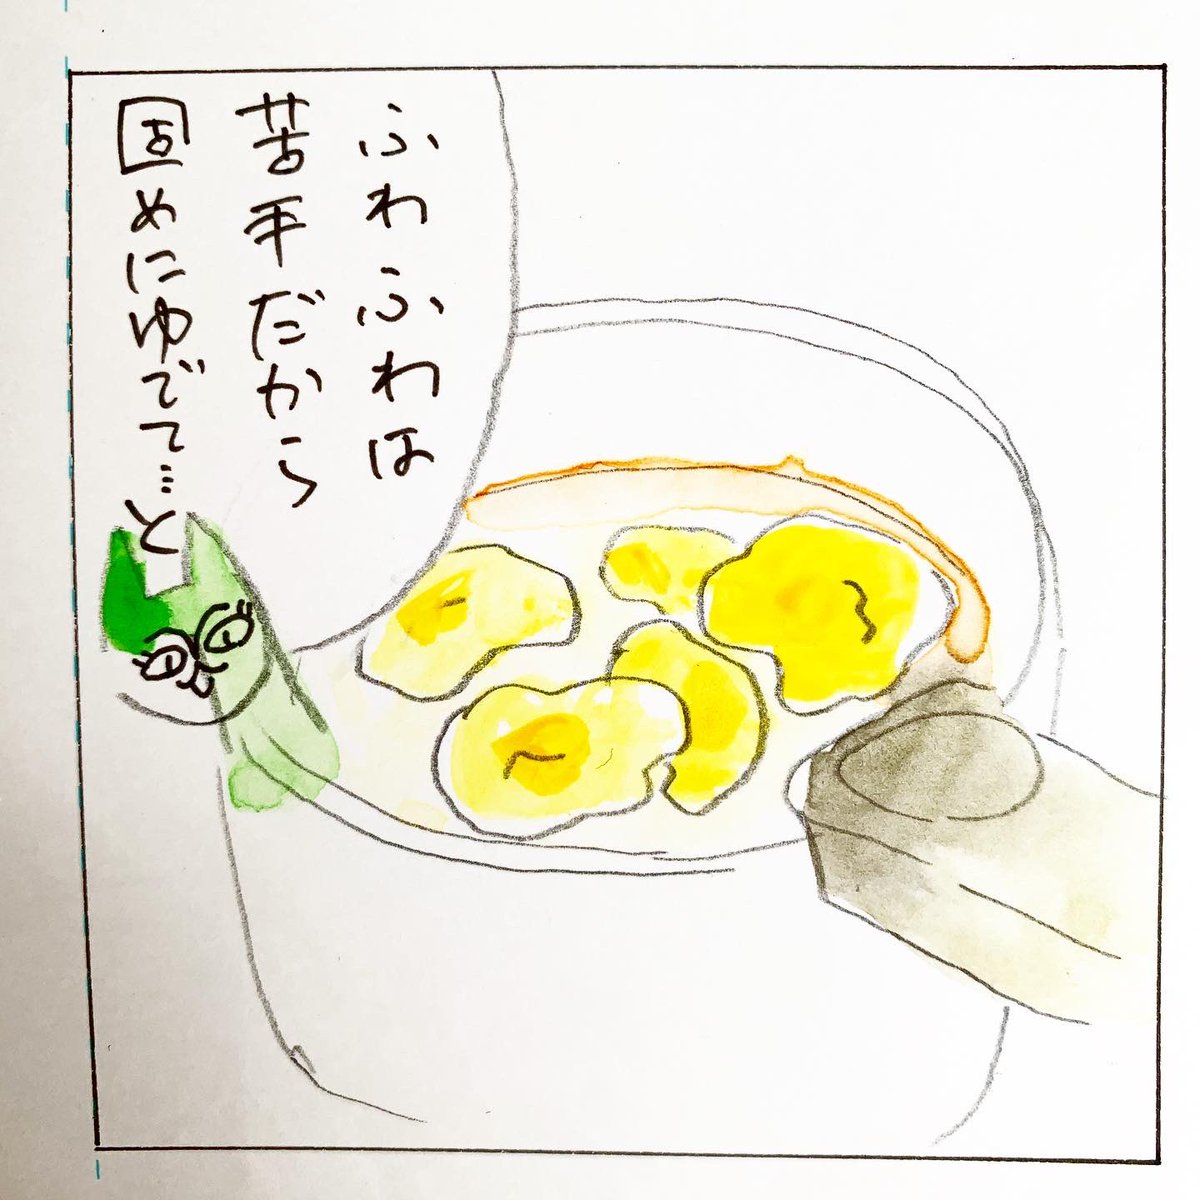 ふわふわは
苦手だから
固めにゆでて…と